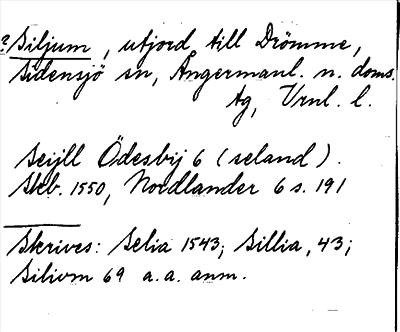 ? Siljum, utjord till Drömme,
Sidensjö sn, Ångermanl. n. doms.
tg, Vrnl. l.
Seijll Ödesbij 6 (seland).
Skb. 1550, Nordlander 6 s. 191
Skrives: Selia 1543; Sillia, 43;
Siliom 69 a.a. anm.